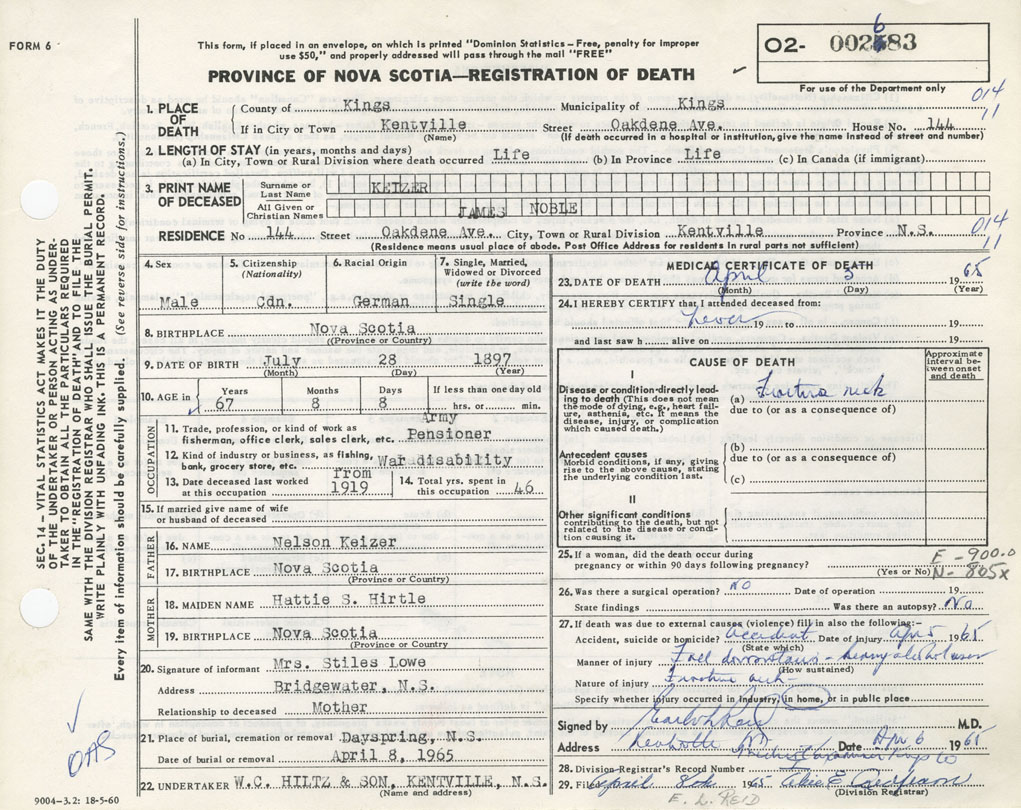 FORM 6
This form, if placed in an envelope, on which is printed "Dominion Statistics – Free, penalty for improper
use $50," and properly addressed will pass through the mail "FREE"
PROVINCE OF NOVA SCOTIA—REGISTRATION OF DEATH
O2- 002683
For use of the Department only
014
11
1. PLACE OF DEATH
County of Kings Municipality of Kings
If in City or Town Kentville Street Oakdene Ave. House No. 144
(Name) (If death occurred in a hospital or institution, give the name instead of street and number)
2. LENGTH OF STAY (in years, months and days)
(a) In City, Town or Rural Division where death occurred Life (b) In Province Life (c) In Canada (if immigrant)
3. PRINT NAME OF DECEASED
Surname or Last Name KEIZER
All Given or Christian Names JAMES NOBLE
RESIDENCE No 144 Street Oakdene Ave. City, Town or Rural Division Kentville Province N.S.
(Residence means usual place of abode. Post Office Address for residents in rural parts not sufficient)
014
11
4. Sex
Male
5. Citizenship (Nationality)
Cdn.
6. Racial Origin
German
7. Single, Married, Widowed or Divorced (write the word)
Single
8. BIRTHPLACE Nova Scotia
((Province or Country)
9. DATE OF BIRTH July 28 1897
(Month) (Day) (Year)
10. AGE in Years Months Days If less than one day old
67 8 8 hrs. or min.
OCCUPATION
11. Trade, profession, or kind of work as fisherman, office clerk, sales clerk, etc. Army Pensioner
12. Kind of industry or business, as fishing, bank, grocery store, etc. War disability
13. Date deceased last worked at this occupation from 1919
14. Total yrs. spent in this occupation 46
15. If married give name of wife or husband of deceased
FATHER
16. NAME Nelson Keizer
17. BIRTHPLACE Nova Scotia
(Province or Country)
MOTHER
18. MAIDEN NAME Hattie S. Hirtle
19. BIRTHPLACE Nova Scotia
(Province or Country
20. Signature of informant Mrs. Stiles Lowe
Address Bridgewater, N.S.
Relationship to deceased Mother
21. Place of burial, cremation or removal Dayspring, N.S.
Date of burial or removal April 8, 1965
22. UNDERTAKER W.C. HILTZ & SON, KENTVILLE, N.S.
(Name and address)
MEDICAL CERTIFICATE OF DEATH
23. DATE OF DEATH April 5 1965
(Month) (Day) (Year)
24. I HEREBY CERTIFY that I attended deceased from:
never 19 to 19
and last saw h alive on 19
CAUSE OF DEATH
Approximate interval between onset and death
I
Disease or condition directly leading to death (This does not mean the mode of dying, e.g., heart failure, asthenia, etc. It means the disease, injury, or complication which caused death.)
(a) Fracture neck
due to (or as a consequence of)
Antecedent causes
Morbid conditions, if any, giving rise to the above cause, stating the underlying condition last.
(b)
due to (or as a consequence of)
(c)
II
Other significant conditions
contributing to the death, but not related to the disease or condition causing it.
25. If a woman, did the death occur during pregnancy or within 90 days following pregnancy?
(Yes or No)
E - 900.0
N - 805x
26. Was there a surgical operation? NO Date of operation 19
State findings Was there an autopsy? No
27. If death was due to external causes (violence) fill in also the following:–
Accident, suicide or homicide? Accident Date of injury Apr 5 1965
(State which)
Manner of injury Fell downstairs -
(How sustained)
Nature of injury Fracture neck
Specify whether injury occurred in industry, in home, or in public place
Signed by M.D.
Address Date Apr 6 1965
28. Division-Registrar's Record Number
29. Filed April 8th 1965
(Division Registrar)
E. L. REID
SEC. 14 – VITAL STATISTICS ACT MAKES IT THE DUTY
OF THE UNDERTAKER OR PERSON ACTING AS UNDER-
TAKER TO OBTAIN ALL THE PARTICULARS REQUIRED
IN THE "REGISTRATION OF DEATH" AND TO FILE THE
SAME WITH THE DIVISION REGISTRAR WHO SHALL ISSUE THE BURIAL PERMIT.
WRITE PLAINLY WITH UNFADING INK. THIS IS A PERMANENT RECORD.
Every item of information should be carefully supplied. (See reverse side for instructions.)
OAS
9004–3.2: 18-5-60